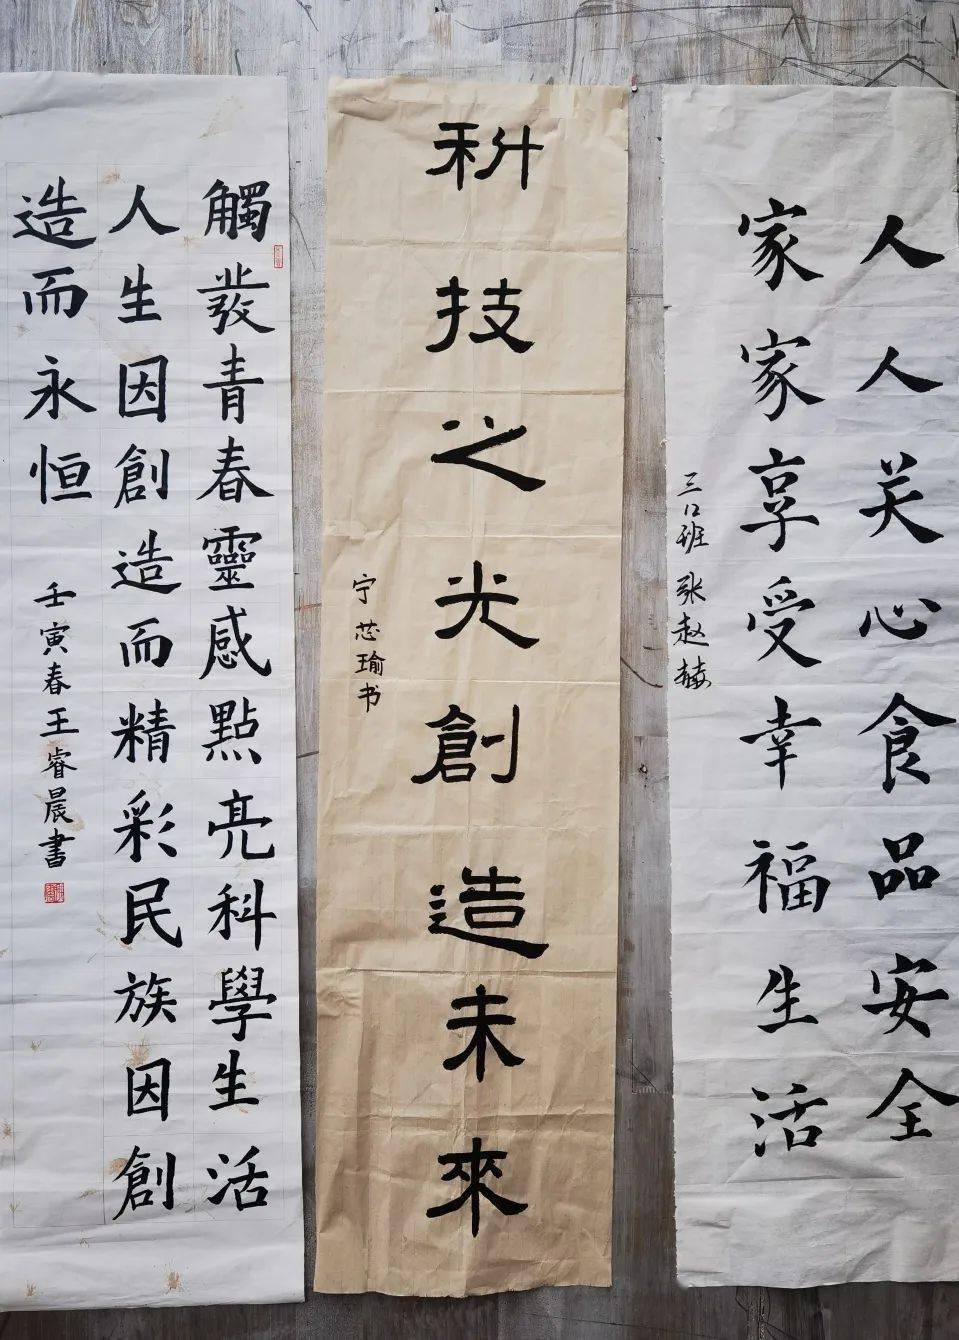 人人关心食品安全
家家享受幸福生活
三口班 张赵赫
科技之光創造未來
宁芯瑜书
觸發青春靈感點亮科學生活
人生因創造而精彩民族因創
造而永恒
壬寅春王睿晨書